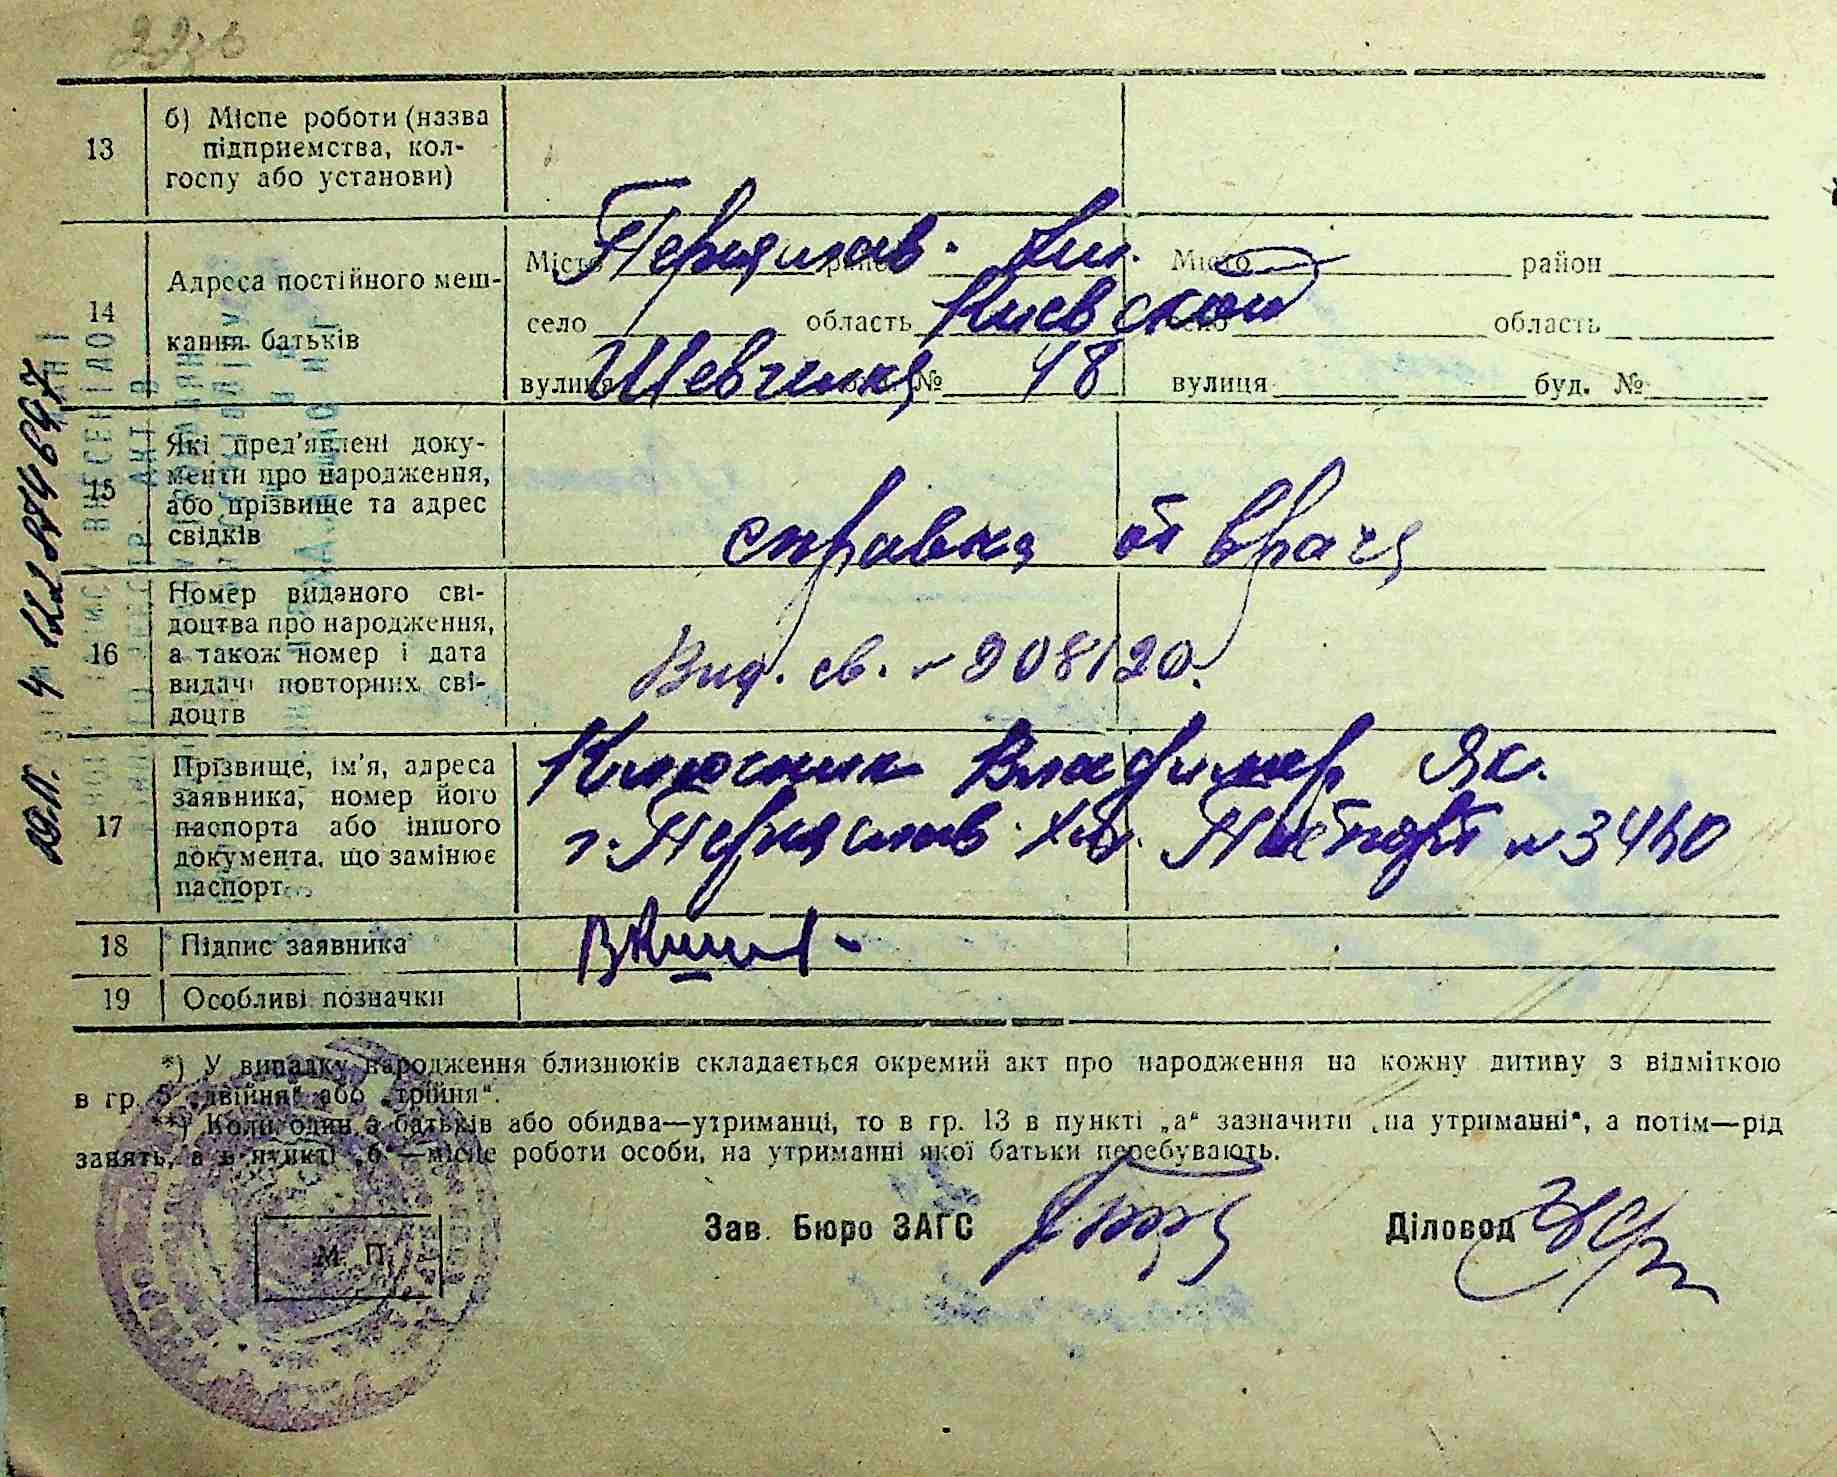 13
б) Місце роботи (назва
підприємства, кол-
госпу або установи)
14
Адреса постійного меш-
кання батьків
Місто Переяслав. Хм. Місто район
село область Киевской область
вулиця Шевченка № 48 вулиця буд. №
15
Які пред'явлені доку-
менти про народження,
або прізвище та адрес
свідків
справка от врача
16
Номер виданого сві-
доцтва про народження,
а також номер і дата
видачі повторних сві-
доцтв
Выд. св. № 908120.
17
Прізвище, ім'я, адреса
заявника, номер його
паспорта або іншого
документа, що замінює
паспорт
Владимир Як.
г. Переяслав Хм. Паспорт №
18 Підпис заявника
19 Особливі позначки
*) У випадку народження близнюків складається окремий акт про народження на кожну дитину з відміткою
в гр. 5 „двійня" або „трійня".
**) Коли один з батьків або обидва—утриманці, то в гр. 13 в пункті „а" зазначити „на утриманні", а потім—рід
занять, а в пункті „б"—місце роботи особи, на утриманні якої батьки перебувають.
Зав. Бюро ЗАГС Діловод
М. П.